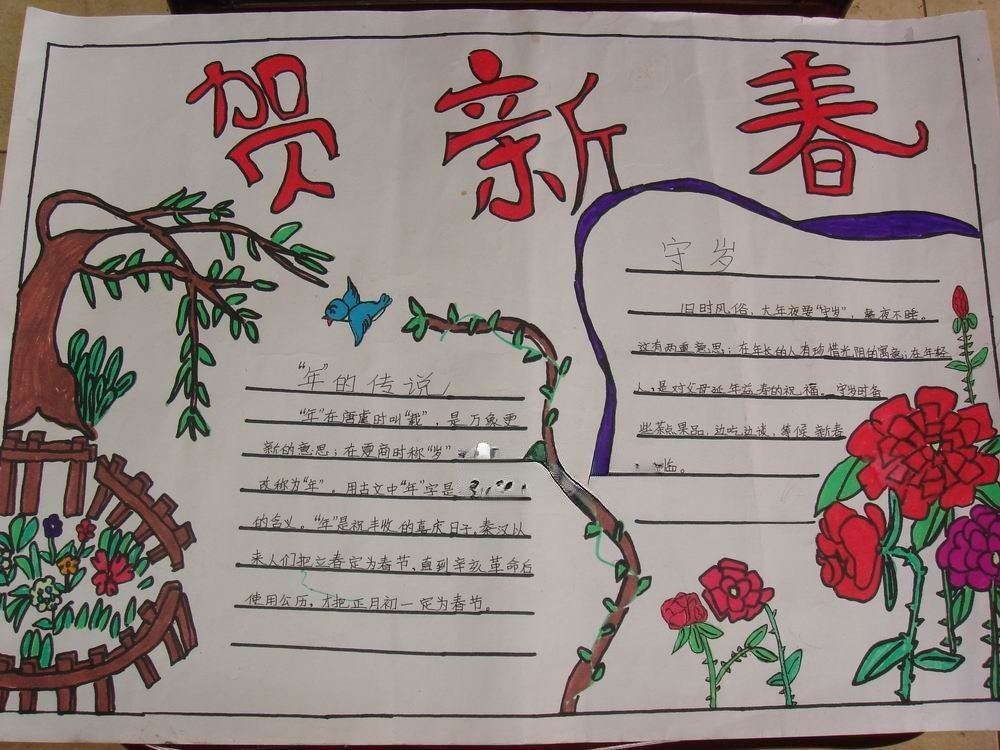 贺新春
“年”的传说
“年”在唐虞时叫“载”，是万象更
新的意思；在夏商时称“岁”
改称为“年”，用古文中“年”字是
的含义。“年”是祝丰收的喜庆日子，秦汉以
来人们把立春定为春节，直到辛亥革命后
使用公历，才把正月初一定为春节。
守岁
旧时风俗，大年夜要“守岁”，整夜不睡。
这有两重意思；在年长的人有珍惜光阴的寓意；在年轻
人，是对父母延年益寿的祝福。守岁时备
些茶点果品，边吃边谈，等候新春
临。